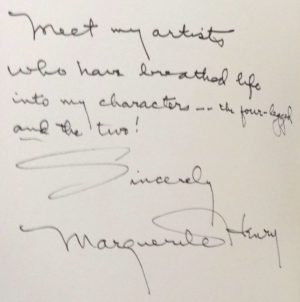 Meet my artists
who have breathed life
into my characters -- the four-legged
and the two!
Sincerely
Marguerite Henry